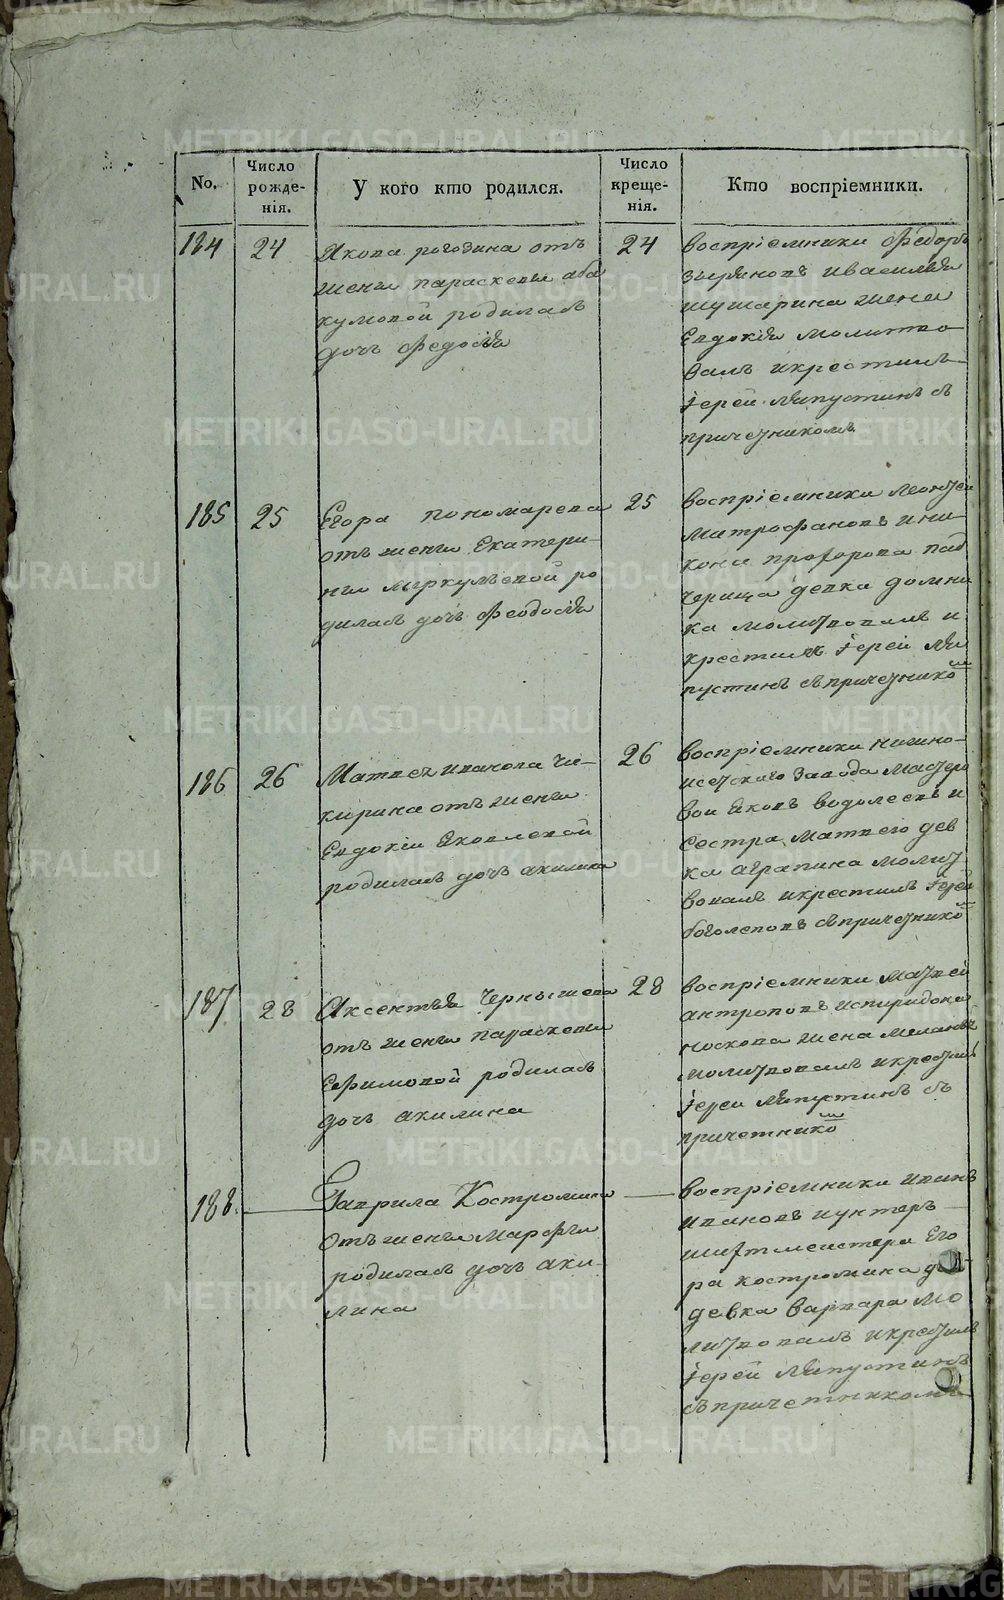 No.
Число рожде-нія.
У кого кто родился.
Число креще-нія.
Кто воспріемники.
184
24
Якова рогозина отъ
жены параскевы аба
кумовой родилась
дочь Федосія
24
воспріемники Федоръ
зыряновъ и василія
шушарина жена
Евдокія молитво
валъ и крестилъ
Іерей Ляпустинъ съ
причетникомъ
185
25
Егора пономарева
отъ жены Екатери-
ны меркульевой ро
дилась дочь Феодосія
25
воспріемники Моисей
Митрофановъ и ни-
кона прохорова пад
черица девка домни
ка молитвовалъ и
крестилъ Іерей Ля
пустинъ съ причетнико
186
26
Матвея иванова Чи-
кирина отъ жены
Евдокіи Яковлевой
родилась дочь акилина
26
воспріемники нижно-
исетского завода мастеро
вои Яковъ водолеевъ и
сестра Матвего дев
ка аграпина молит
вовалъ и крестилъ Іерей
боголеповъ съ причетнико
187
28
Аксентья Чернышева
отъ жены параскевы
Ефимовой родилась
дочь акилина
28
воспріемники Матвей
антроповъ и спиридона
носкова жена меланья
молитвовалъ и крестилъ
Іерей Ляпустинъ съ
причетнико
188.
Гаврила Костромина
отъ жены Марфы
родилась дочь аки-
лина
воспріемники иванъ
ивановъ и унтеръ
шихтмейстера Его
ра костромина до
девка варвара мо
литвовалъ и крестилъ
Іерей Ляпустинъ
съ причетникомъ
METRIKI.GASO-URAL.RU